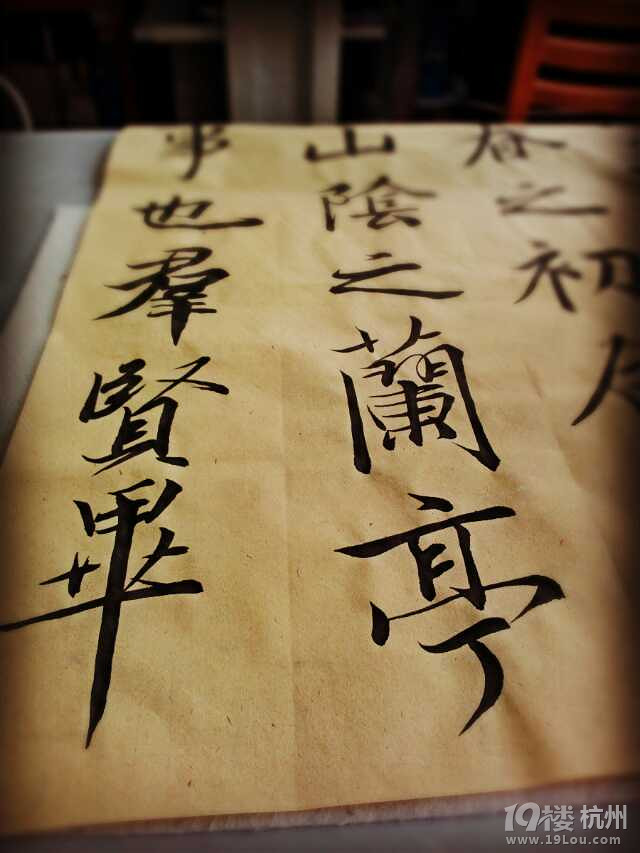 春之初
山陰之蘭亭
事也羣賢畢
19楼杭州
www.19Lou.com